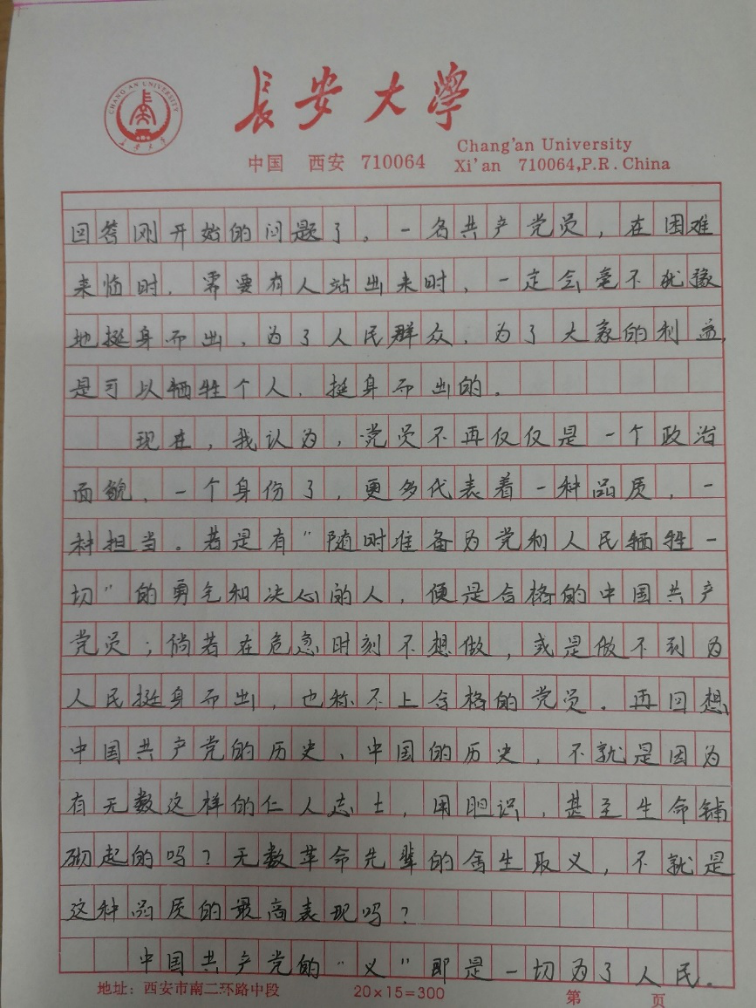 CHANG'AN UNIVERSITY
長安大學
長安大學
Chang'an University
中国 西安 710064 Xi'an 710064,P.R.China
回答刚开始的问题了。一名共产党员，在困难
来临时，需要有人站出来时，一定会毫不犹豫
地挺身而出，为了人民群众，为了大家的利益，
是可以牺牲个人，挺身而出的。
现在，我认为，党员不再仅仅是一个政治
面貌，一个身份了，更多代表着一种品质，一
种担当。若是有“随时准备为党和人民牺牲一
切”的勇气和决心的人，便是合格的中国共产
党员；倘若在危急时刻不想做，或是做不到为
人民挺身而出，也称不上合格的党员。再回想
中国共产党的历史、中国的历史，不就是因为
有无数这样的仁人志士，用胆识，甚至生命铺
砌起的吗？无数革命先辈的舍生取义，不就是
这种品质的最高表现吗？
中国共产党的“义”即是一切为了人民。
地址：西安市南二环路中段 20×15=300 第 页